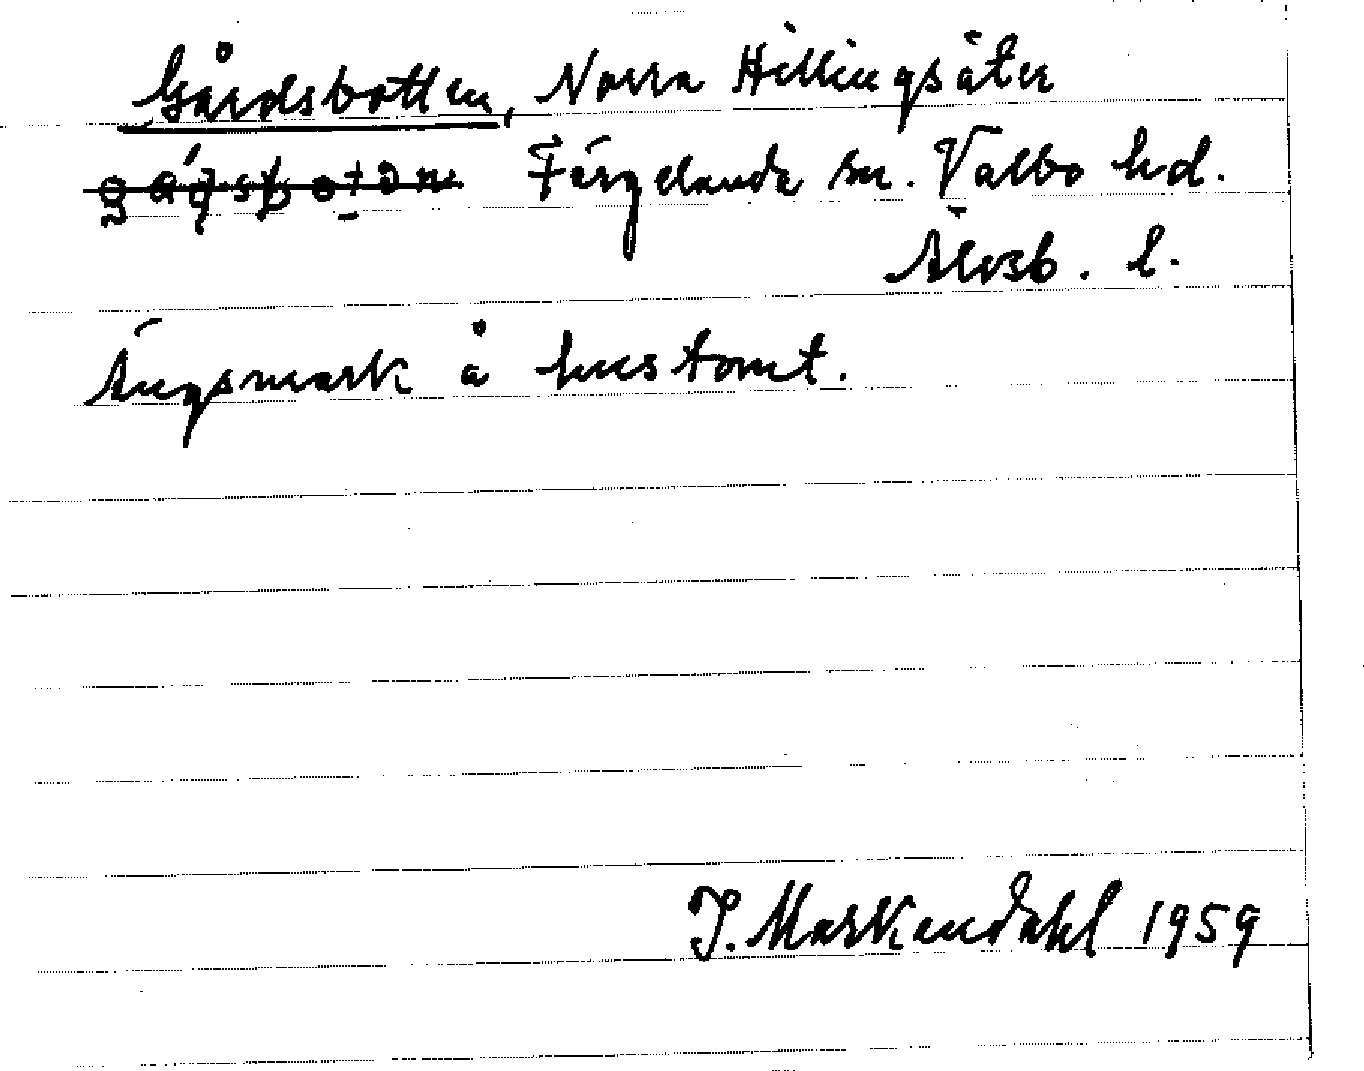 Gårdsbotten, Norra Hillingsäter
Färgelanda sn. Valbo hd.
Älvsb. l.
Ängsmark å hustomt.
J. Markendahl 1959